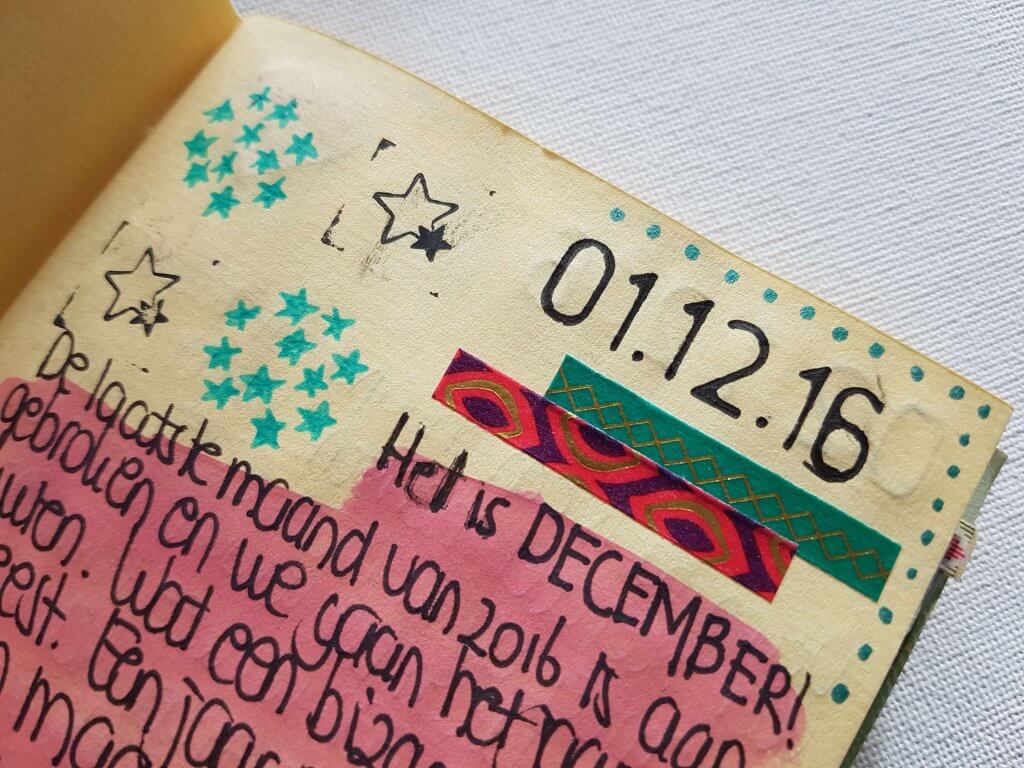 01.12.16
Het is DECEMBER!
De laatste maand van 2016 is aan
gebroken en we gaan het
uwen. Wat een
eest. Een jaar